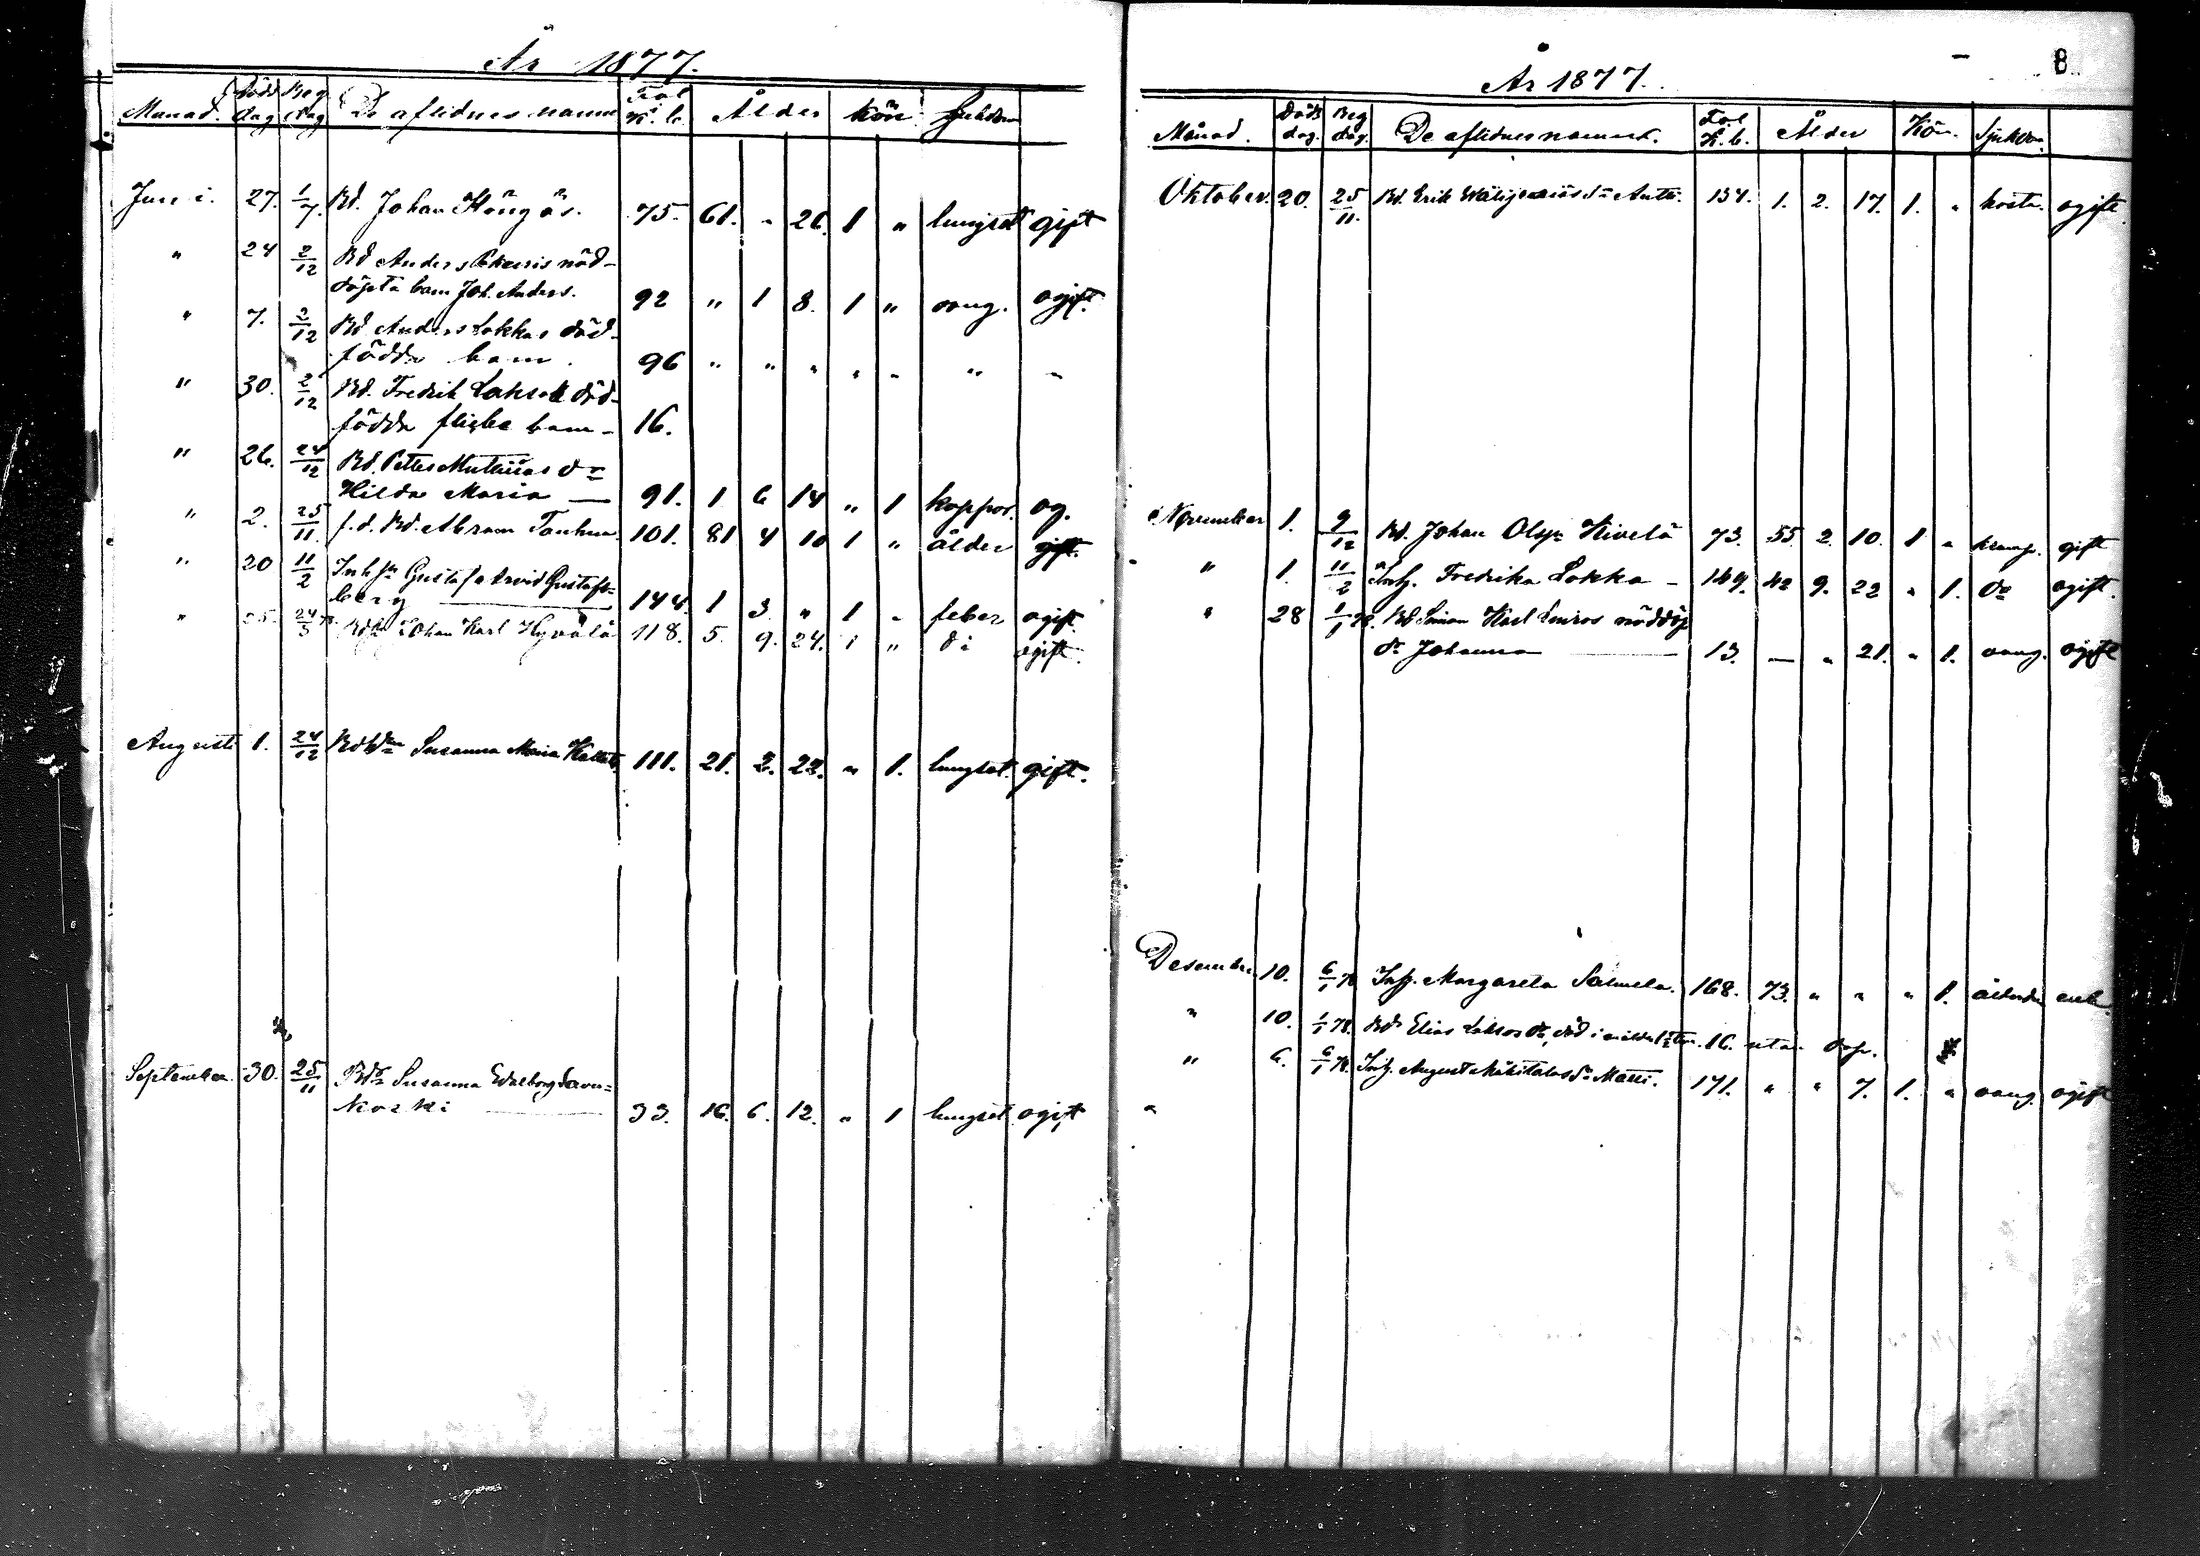 År 1877.
Månad. Död dag Beg dag De aflidnes namn Fol K. b. Ålder Kön Sjukdom
Juni. 27. 1/7. Bd. Johan Höngäs. 75. 61. " 26. 1 " lungsot gift
" 24 2/12 Bd Anders nöd-
döpta barn Joh. Anders. 92 " 1 8. 1 " oang. ogift.
" 7. 2/12 Bd Anders Lokkas död-
födda barn. 96 " " " " " " "
" 30. 2/12 Bd. Fredrik död-
födda flicka barn - 16.
" 26. 24/12 Bd. Petter Mathias dr
Hilda Maria — 91. 1 6 14 " 1 koppor. og.
" 2. 25/11. f.d. Bd. Abram Tanhua. 101. 81 4 10 1 " ålder gift.
" 20 11/2 Inhsn Gustaf Arvid Gustafs=
berg — 144. 1 3 " 1 " feber ogift.
" 24/3 Johan Karl Hyvälä 118. 5. 9. 24. 1 " di ogift.
Augusti 1. 24/12 Susanna Maria 111. 21. 2. 22. " 1. lungsot gift.
September. 30. 25/11 Bdr Susanna Walborg Savu=
koski — 33. 16. 6. 12. " 1 lungsot ogift
8.
År 1877.
Månad. Död dag. Beg dag. De aflidnes namn. Fol K. b. Ålder Kön. Sjukdom
Oktober. 20. 25/11. Bd. Erik sn Antti. 134. 1. 2. 17. 1. " hosta. ogift
November 1. 9/12 Bd. Johan Olofsn Kivelä 73. 55. 2. 10. 1 " kramp. gift
" 1. 11/2 Inh. Fredrika Lokka - 149. 42 9. 22 " 1. do ogift.
" 28 1/1 78. Bd Simon Karl nöddöp
dr Johanna — 13. — " 21. " 1. oang. ogift
Desember 10. 6/1 78 Inh. Margareta Salmela. 168. 73. " " " 1. ålderdom enk.
" 10. 1/1 78. Bds Elias dr, död i 16. utan dop.
" 6. 6/1 78. Inh. August Mäkitalos sn Matti. 171. " " 7. 1. " oang. ogift
"